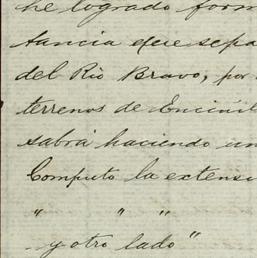 he logrado form
tancia que sepa
del Rio Bravo, por
terrenos de Encinil
sabrá haciendo un
Computo la extensi
" " "
y otro lado"